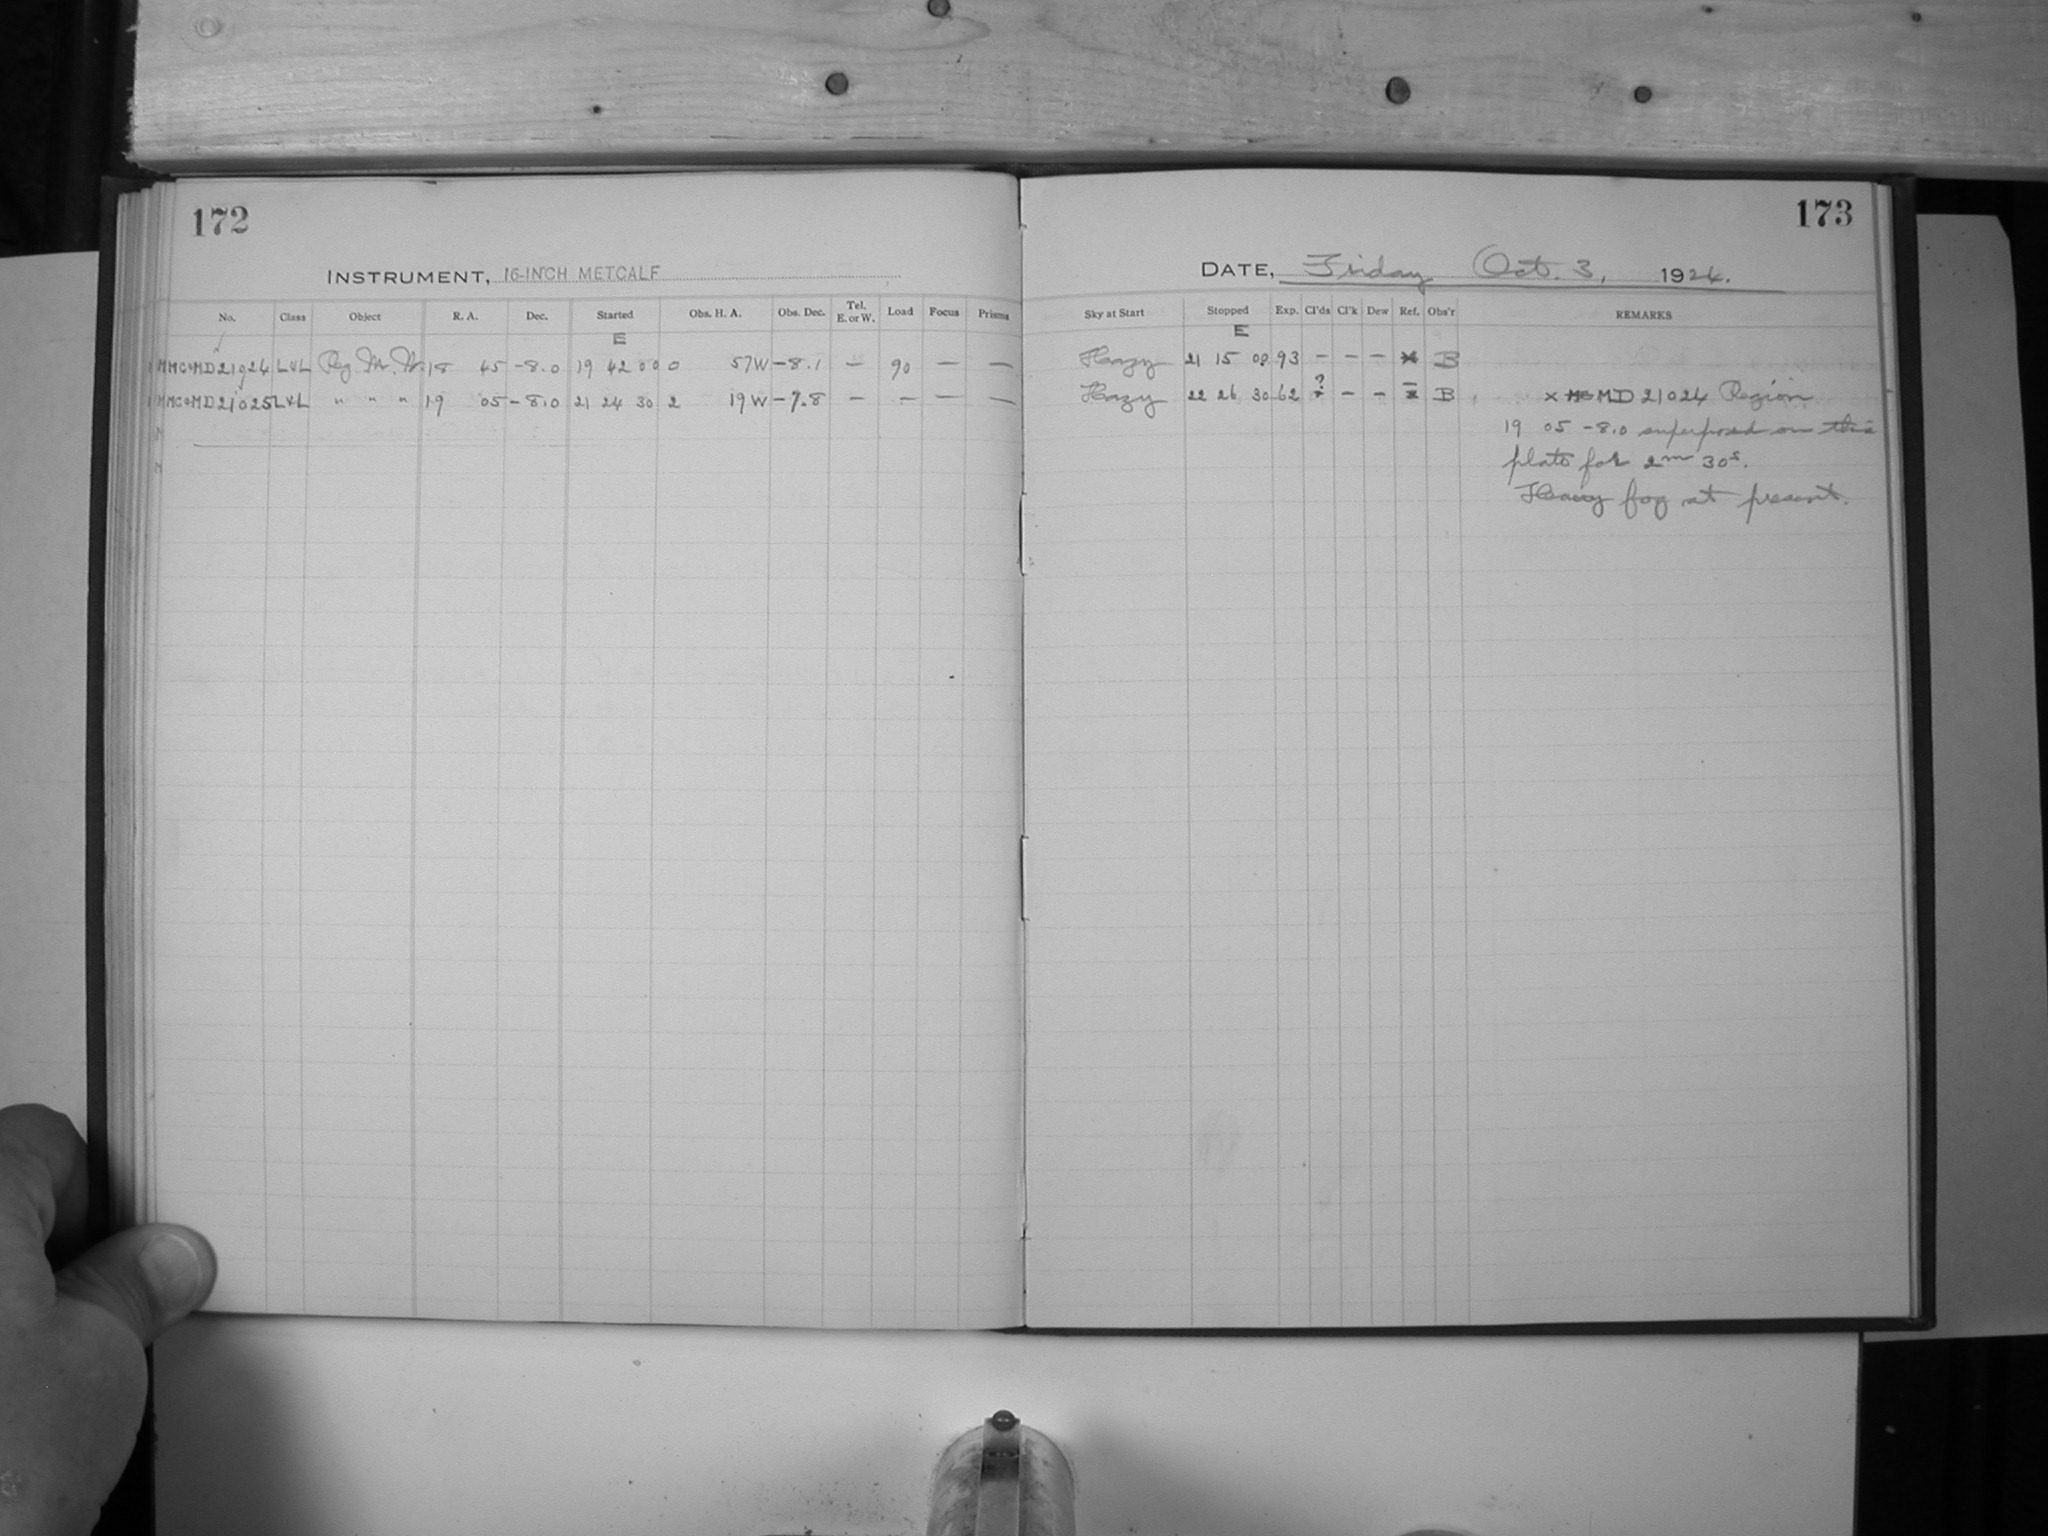 172
INSTRUMENT, 16-INCH METCALF
No. Class Object R. A. Dec. Started Obs. H. A. Obs. Dec. Tel. E. or W. Load Focus Prisms
E
MC MD21024 LVL Reg. M. W. 18 45 -8.0 19 42 00 0 57W -8.1 — 90 — —
MC MD21025 LVL " " " 19 05 -8.0 21 24 30 2 19W -7.8 — — — —
M
M
173
DATE, Friday Oct. 3, 1924.
Sky at Start Stopped Exp. Cl'ds Cl'k Dew Ref. Obs'r REMARKS
E
Hazy 21 15 00 93 — — — B
Hazy 22 26 30 62 ? — — B x MD 21024 Region
19 05 -8.0 superposed on this
plate for 2m 30s.
Heavy fog at present.